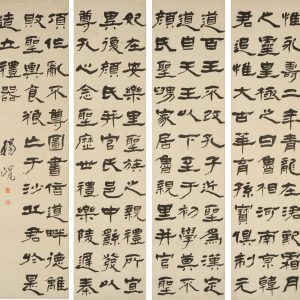 惟永壽二年青龍在涒歎霜月
之靈皇極之日魯相河南京韓
君追惟大古華胥生孔寶俱制元
道百王不改孔子近聖為漢定
道自天王以下至于初學莫不
顏氏聖舅家居魯親里并官聖
妃在安樂里聖族之親禮所宜
異復顏氏并官氏邑中繇發以
尊孔心念聖歷世禮樂陵遲秦
項作亂不尊圖書倍道畔德離
敗聖輿食糧亡于沙丘君於是
造立禮器
楊峴